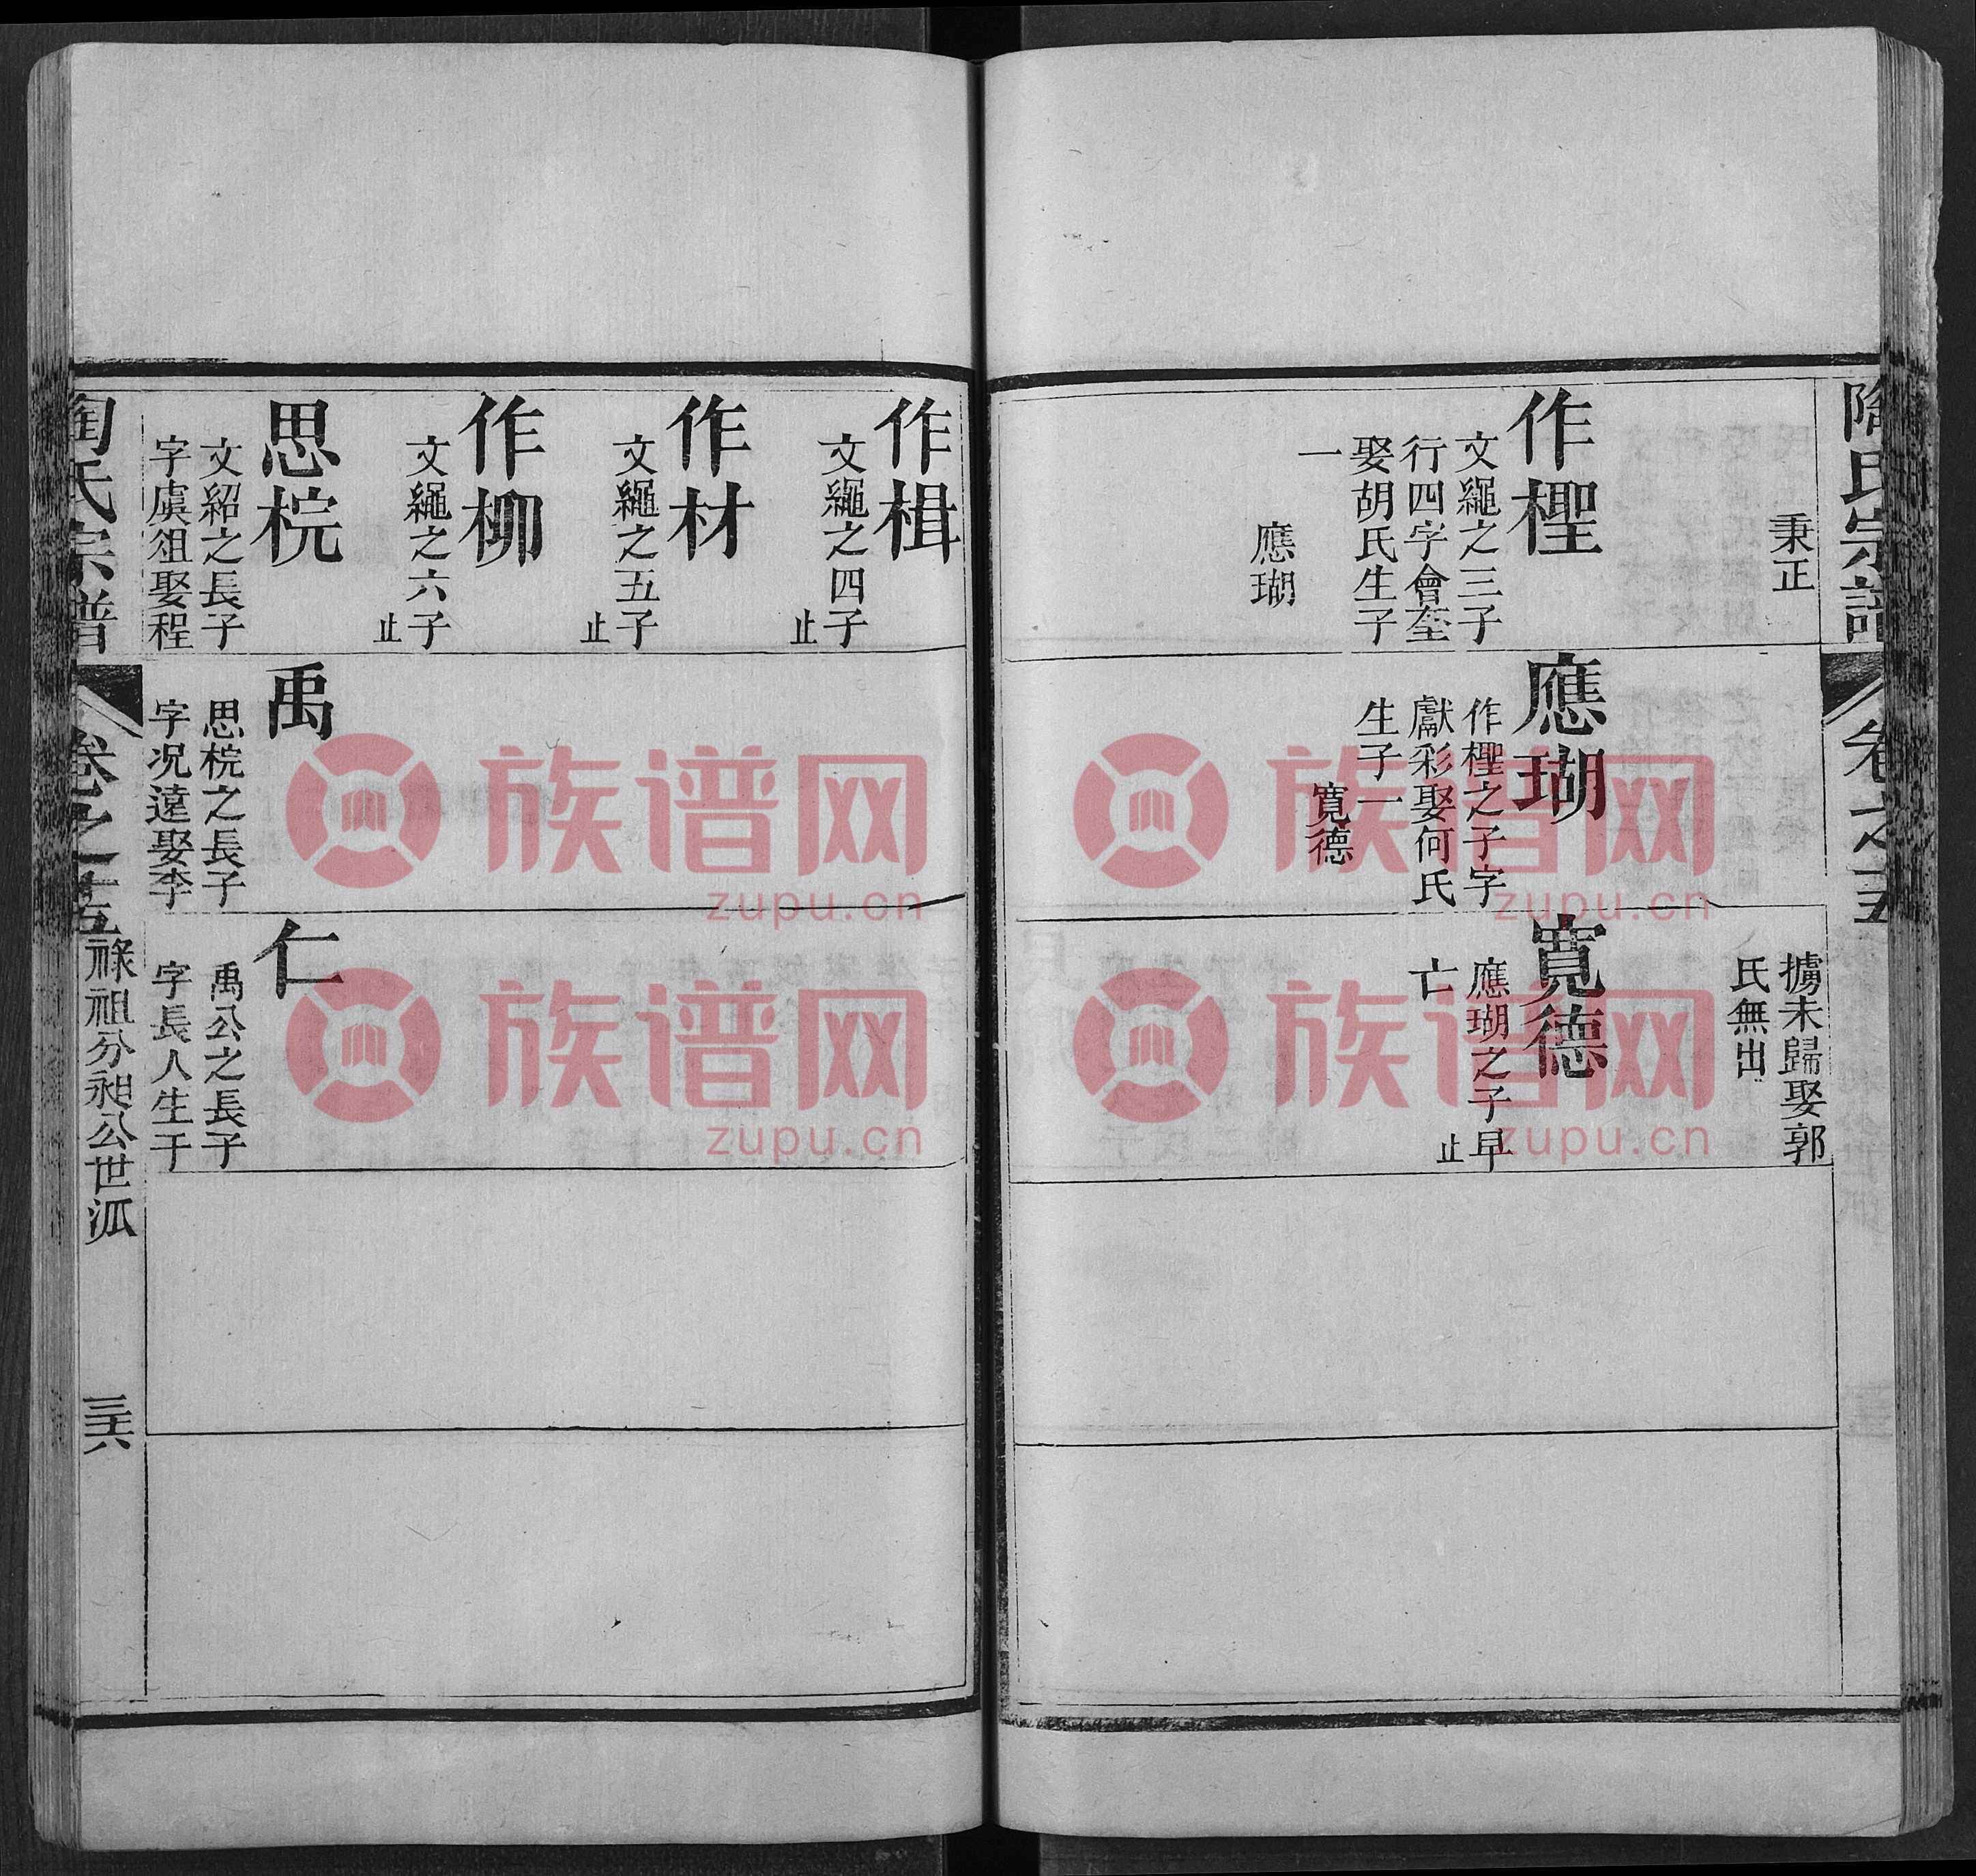 陶氏宗譜
卷之十五
秉正
作檉
文繩之三子
行四字會奎
娶胡氏生子
一
應瑚
應瑚
作檉之子字
獻彩娶何氏
生子一
寬德
擄未歸娶郭
氏無出
寬德
應瑚之子早
亡
止
作楫
文繩之四子
止
作材
文繩之五子
止
作柳
文繩之六子
止
思梡
文紹之長子
字虞徂娶程
禹
思梡之長子
字況遠娶李
仁
禹公之長子
字長人生于
陶氏宗譜
卷之十五
祿祖分昶公世派
三十六
族谱网
zupu.cn
族谱网
zupu.cn
族谱网
zupu.cn
族谱网
zupu.cn